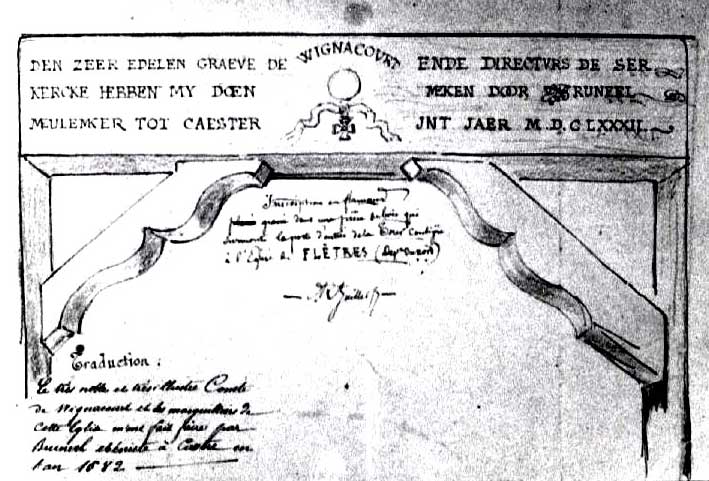 DEN ZEER EDELEN GRAEVE DE WIGNACOURT ENDE DIRECTVRS DE SER
KERCKE HEBBEN MY DOEN MEKEN DOOR RUNEEL
MEULEMKER TOT CAESTER JNT JAER M.D.CLXXXII
Inscription en flamand
gravée dans une pièce de bois qui
surmonte la porte d'entrée de la Tour
à l'Eglise de FLÊTRES
Traduction :
Le très noble et très illustre Comte
de Wignacourt et les marguilliers de
cette Eglise m'ont fait faire par
Bruneel à Caestre en
l'an 1682